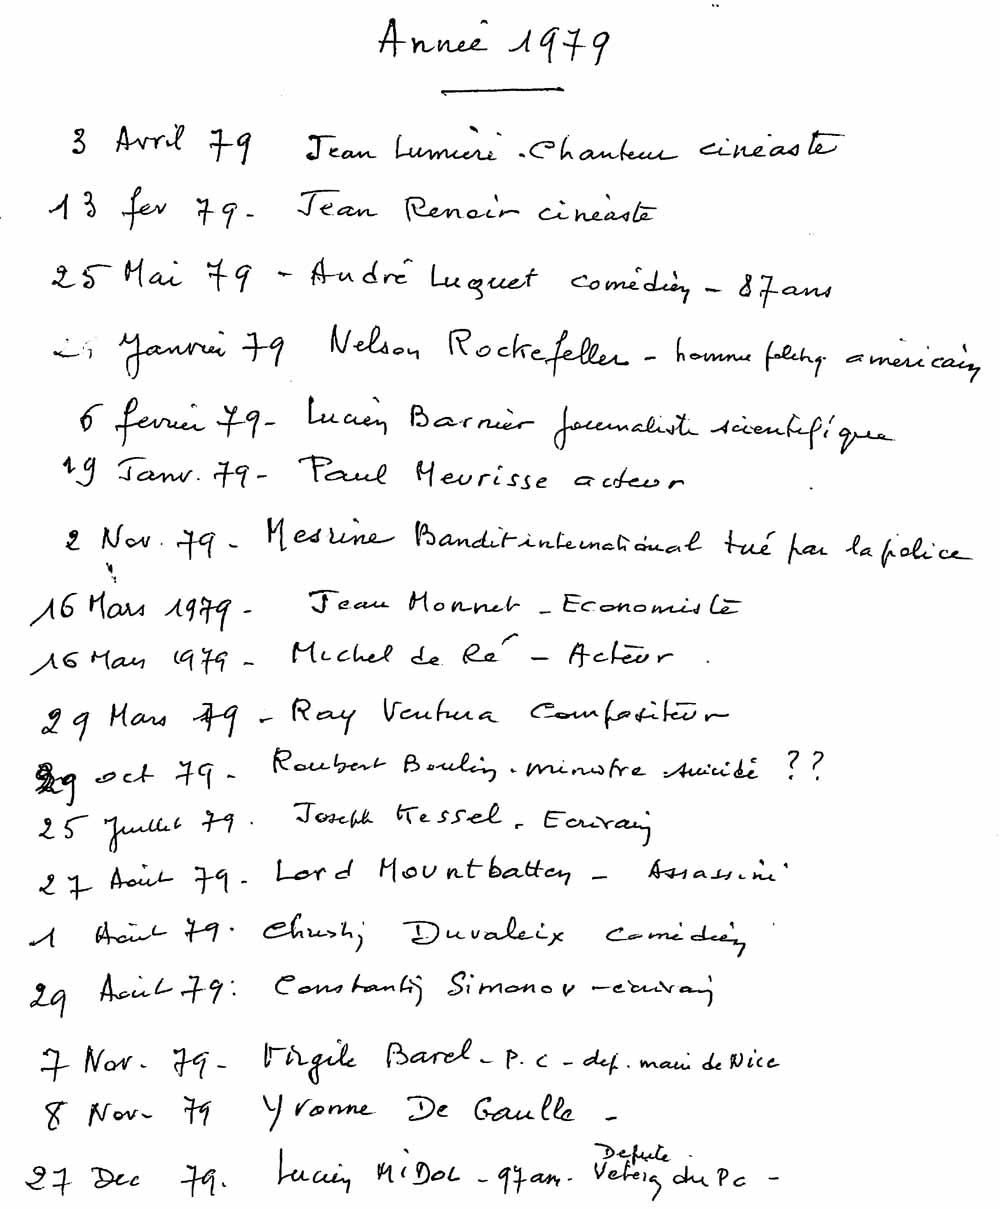 Année 1979
3 Avril 79 Jean Lumière . Chanteur cinéaste
13 fev 79 - Jean Renoir cinéaste
25 Mai 79 - André Luguet comédien - 87 ans
Janvier 79 Nelson Rockefeller - homme politiq américain
6 fevrier 79 - Lucien Barnier journaliste scientifique
19 Janv. 79 - Paul Meurisse acteur
2 Nov. 79 - Mesrine Bandit international tué par la police
16 Mars 1979 - Jean Monnet - Economiste
16 Mars 1979 - Michel de Ré - Acteur .
29 Mars 79 - Ray Ventura Compositeur
29 oct 79 - Roubert Boulin . ministre suicidé ??
25 Juillet 79 . Joseph Kessel . Ecrivain
27 Août 79 - Lord Mountbatten - Assassiné
1 Août 79 . Christi Duvaleix comédien
29 Août 79 : Constantin Simonov - écrivain
7 Nov. 79 - Virgile Barel - P. C - dep. maire de Nice
8 Nov - 79 Yvonne De Gaulle -
Députe
27 Dec 79 . Lucien MiDOL - 97 ans - Veteran du PC -